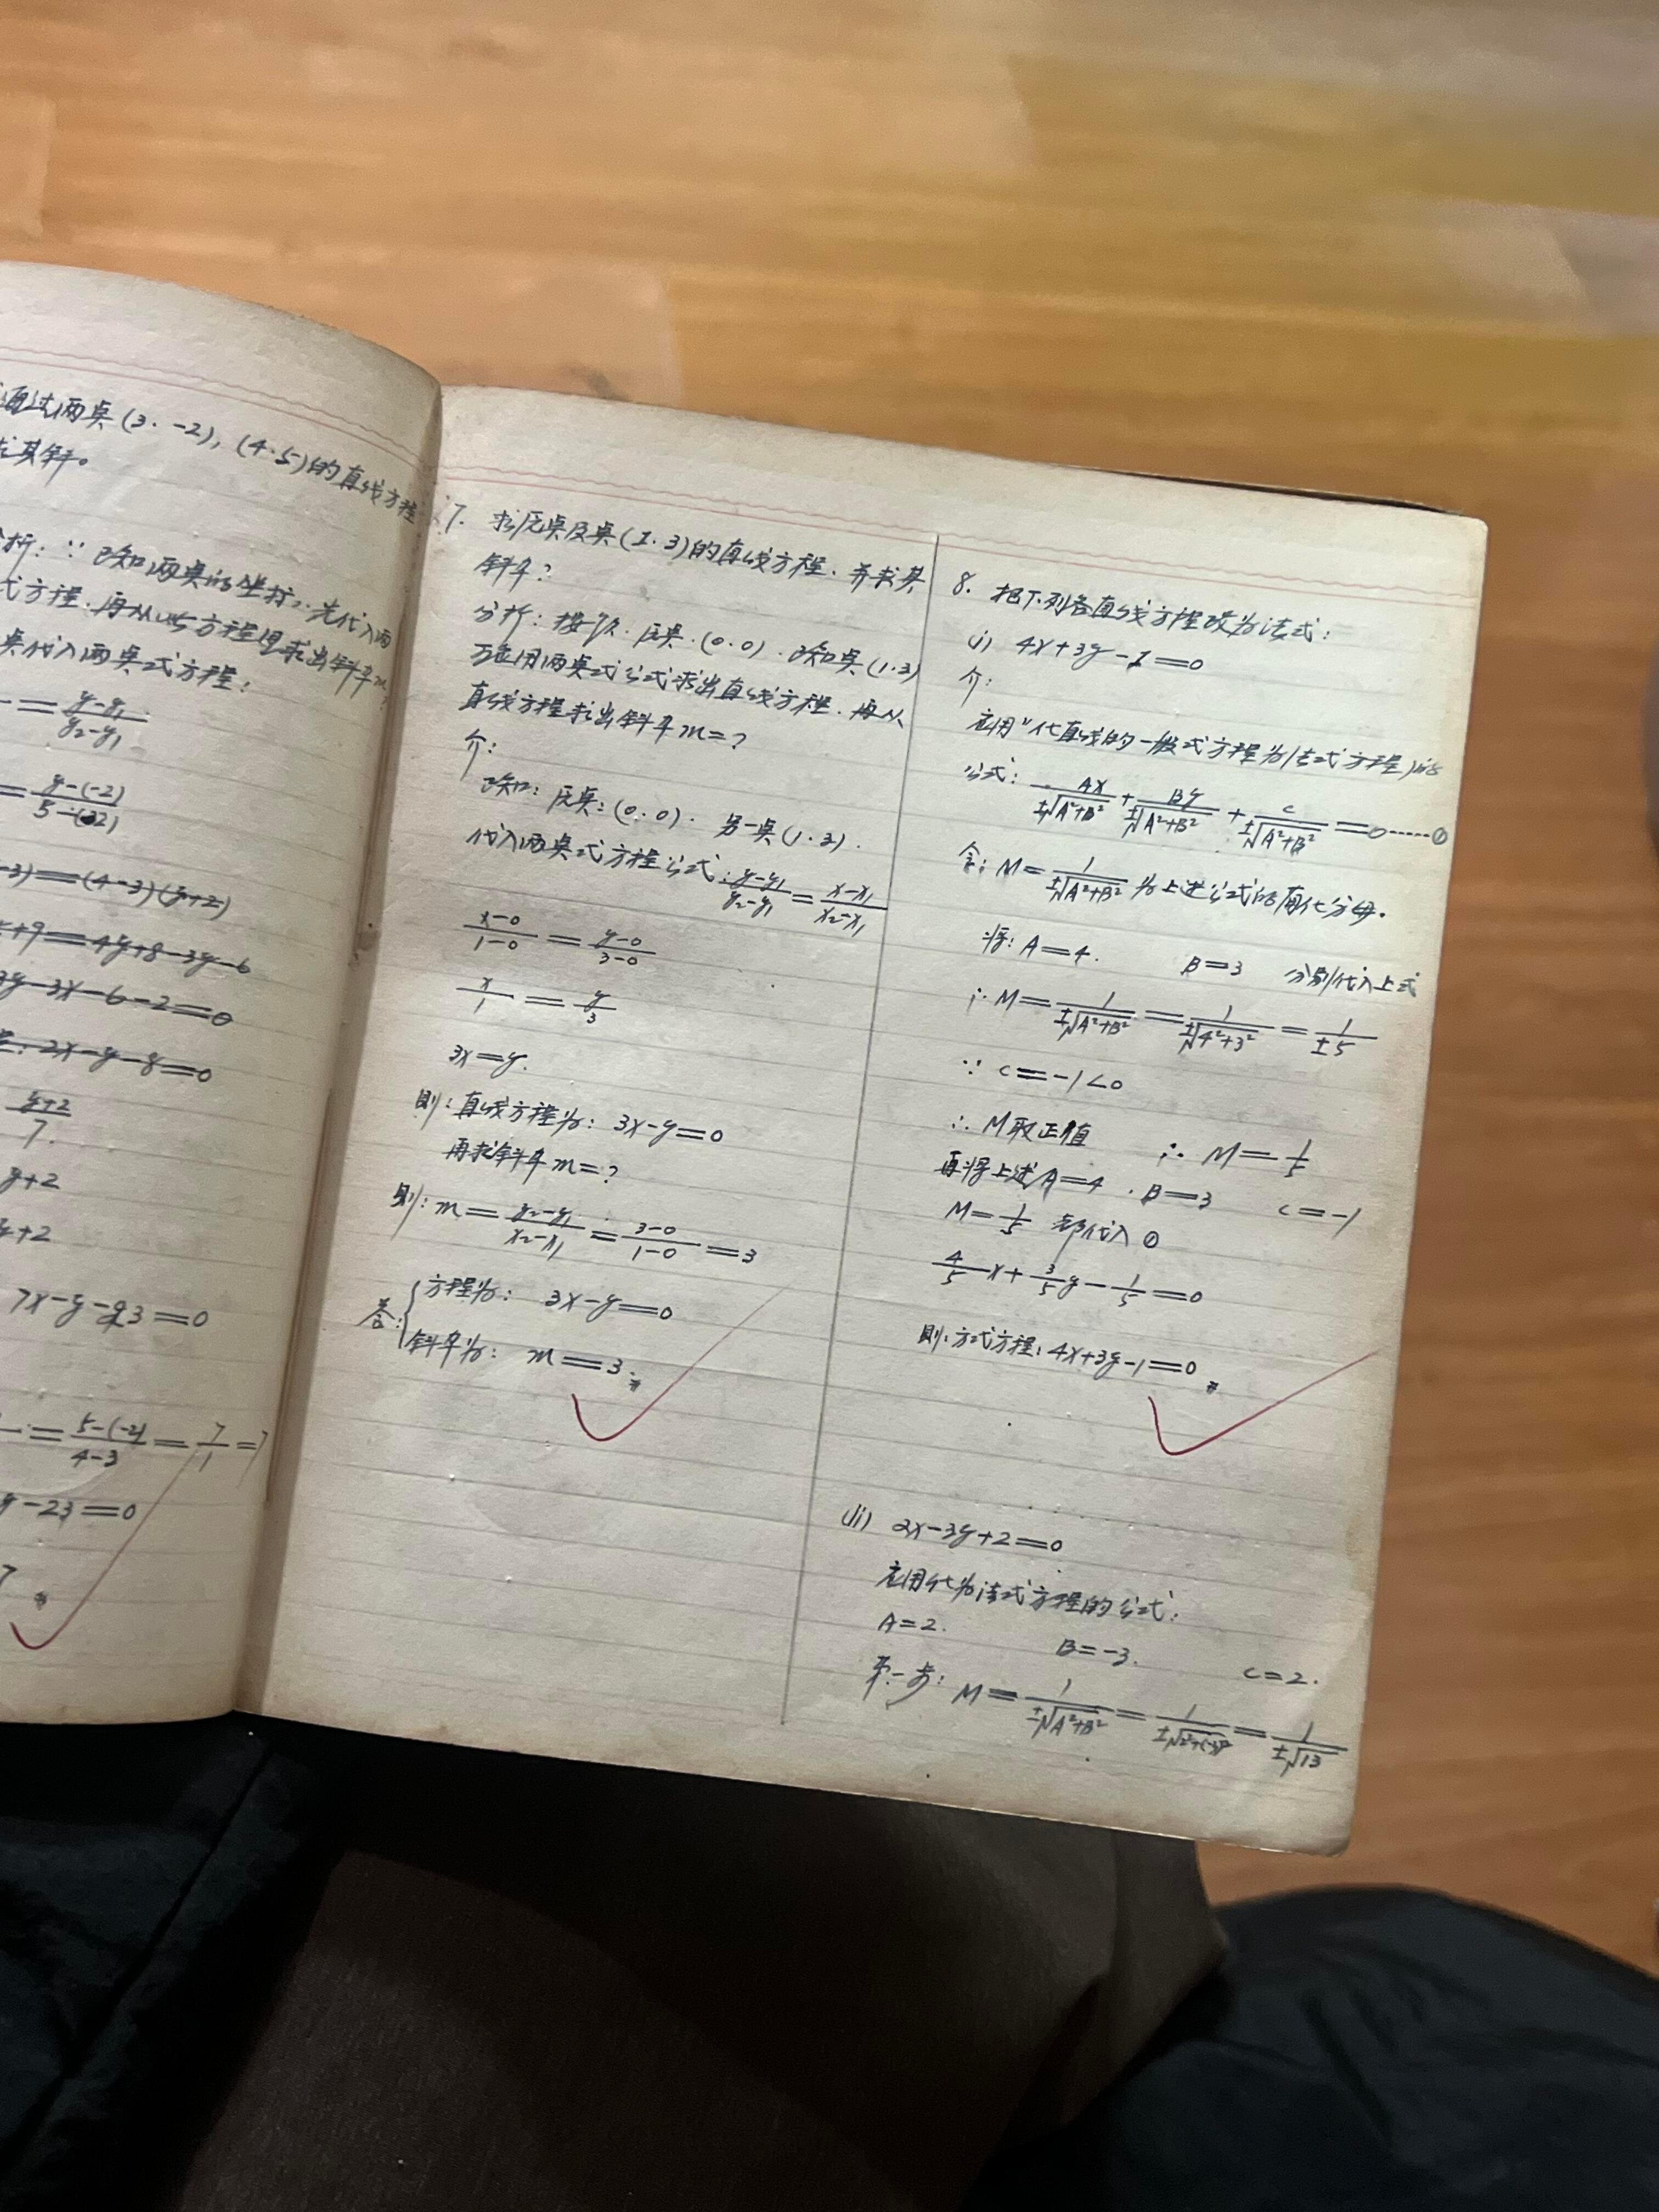 通过两点(3·-2),(4·5)的直线方程
求其斜。
分析:∵已知两点的坐标,先代入两
式方程.再从此方程里求出斜率m?
点代入两点式方程:
=\frac{y-y₁}{y₂-y₁}
=\frac{y-(-2)}{5-(-2)}
-3)=(4-3)(y+2)
+9=4y+8-3y-6
3y-3x-6-2=0
2x-y-8=0
\frac{y+2}{7}
y+2
y+2
7x-y-23=0
=\frac{5-(-2)}{4-3}=\frac{7}{1}=7
y-23=0
7
7. 求原点及点(1·3)的直线方程.并求其
斜率?
分析:按. 原点·(0·0)·已知点(1·3)
应用两点式公式求出直线方程.再从
直线方程求出斜率m=?
介:
已知:原点:(0·0)· 另一点(1·3).
代入两点式方程公式:\frac{y-y₁}{y₂-y₁}=\frac{x-x₁}{x₂-x₁}
\frac{x-0}{1-0}=\frac{y-0}{3-0}
\frac{x}{1}=\frac{y}{3}
3x=y.
則:直线方程为: 3x-y=0
再求斜率m=?
則:m=\frac{y₂-y₁}{x₂-x₁}=\frac{3-0}{1-0}=3
答:{方程为: 3x-y=0
斜率为: m=3.
8. 把下列各直线方程改为法式:
(i) 4x+3y-1=0
介:
应用"化直线的一般式方程为法式方程)的
公式:\frac{Ax}{±√A²+B²}+\frac{By}{±√A²+B²}+\frac{C}{±√A²+B²}=0……①
令:M=\frac{1}{±√A²+B²}为上述公式的简化分母.
将:A=4. B=3 分别代入上式
∴M=\frac{1}{±√A²+B²}=\frac{1}{±√4²+3²}=\frac{1}{±5}
∵ C=-1<0
∴ M取正值 ∴ M=\frac{1}{5}
再将上述A=4 .B=3 C=-1
M=\frac{1}{5} 都代入①
\frac{4}{5}x+\frac{3}{5}y-\frac{1}{5}=0
則:方式方程:4x+3y-1=0
(ii) 2x-3y+2=0
应用化为法式方程的公式:
A=2. B=-3. C=2.
第一步: M=\frac{1}{±√A²+B²}=\frac{1}{±√2²+(-3)²}=\frac{1}{±√13}